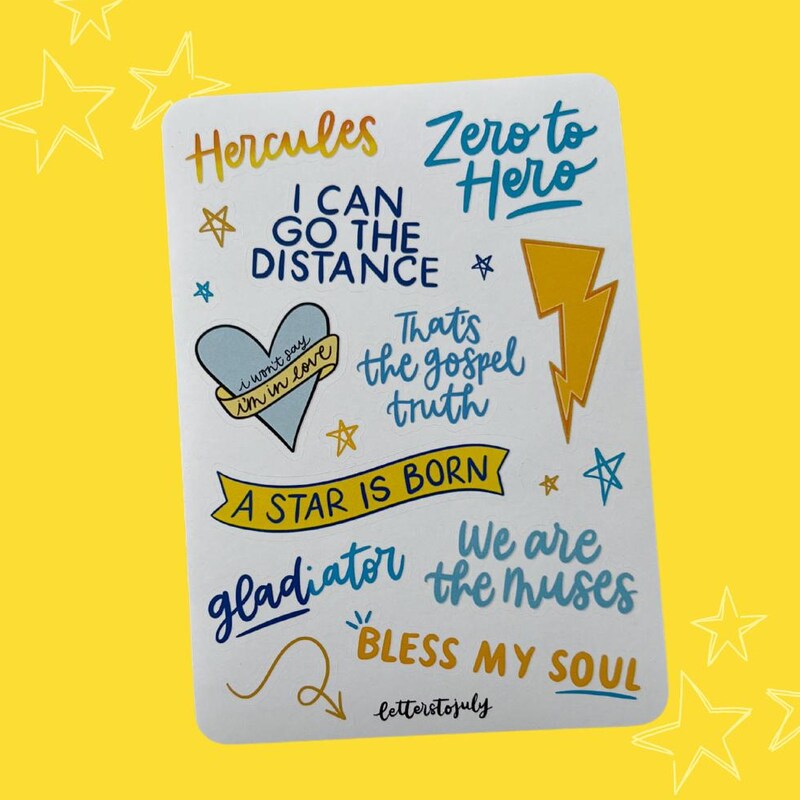 Hercules
Zero to
Hero
I CAN
GO THE
DISTANCE
i won't say
i'm in love
That's
the gospel
truth
A STAR IS BORN
gladiator
We are
the muses
BLESS MY SOUL
letterstojuly